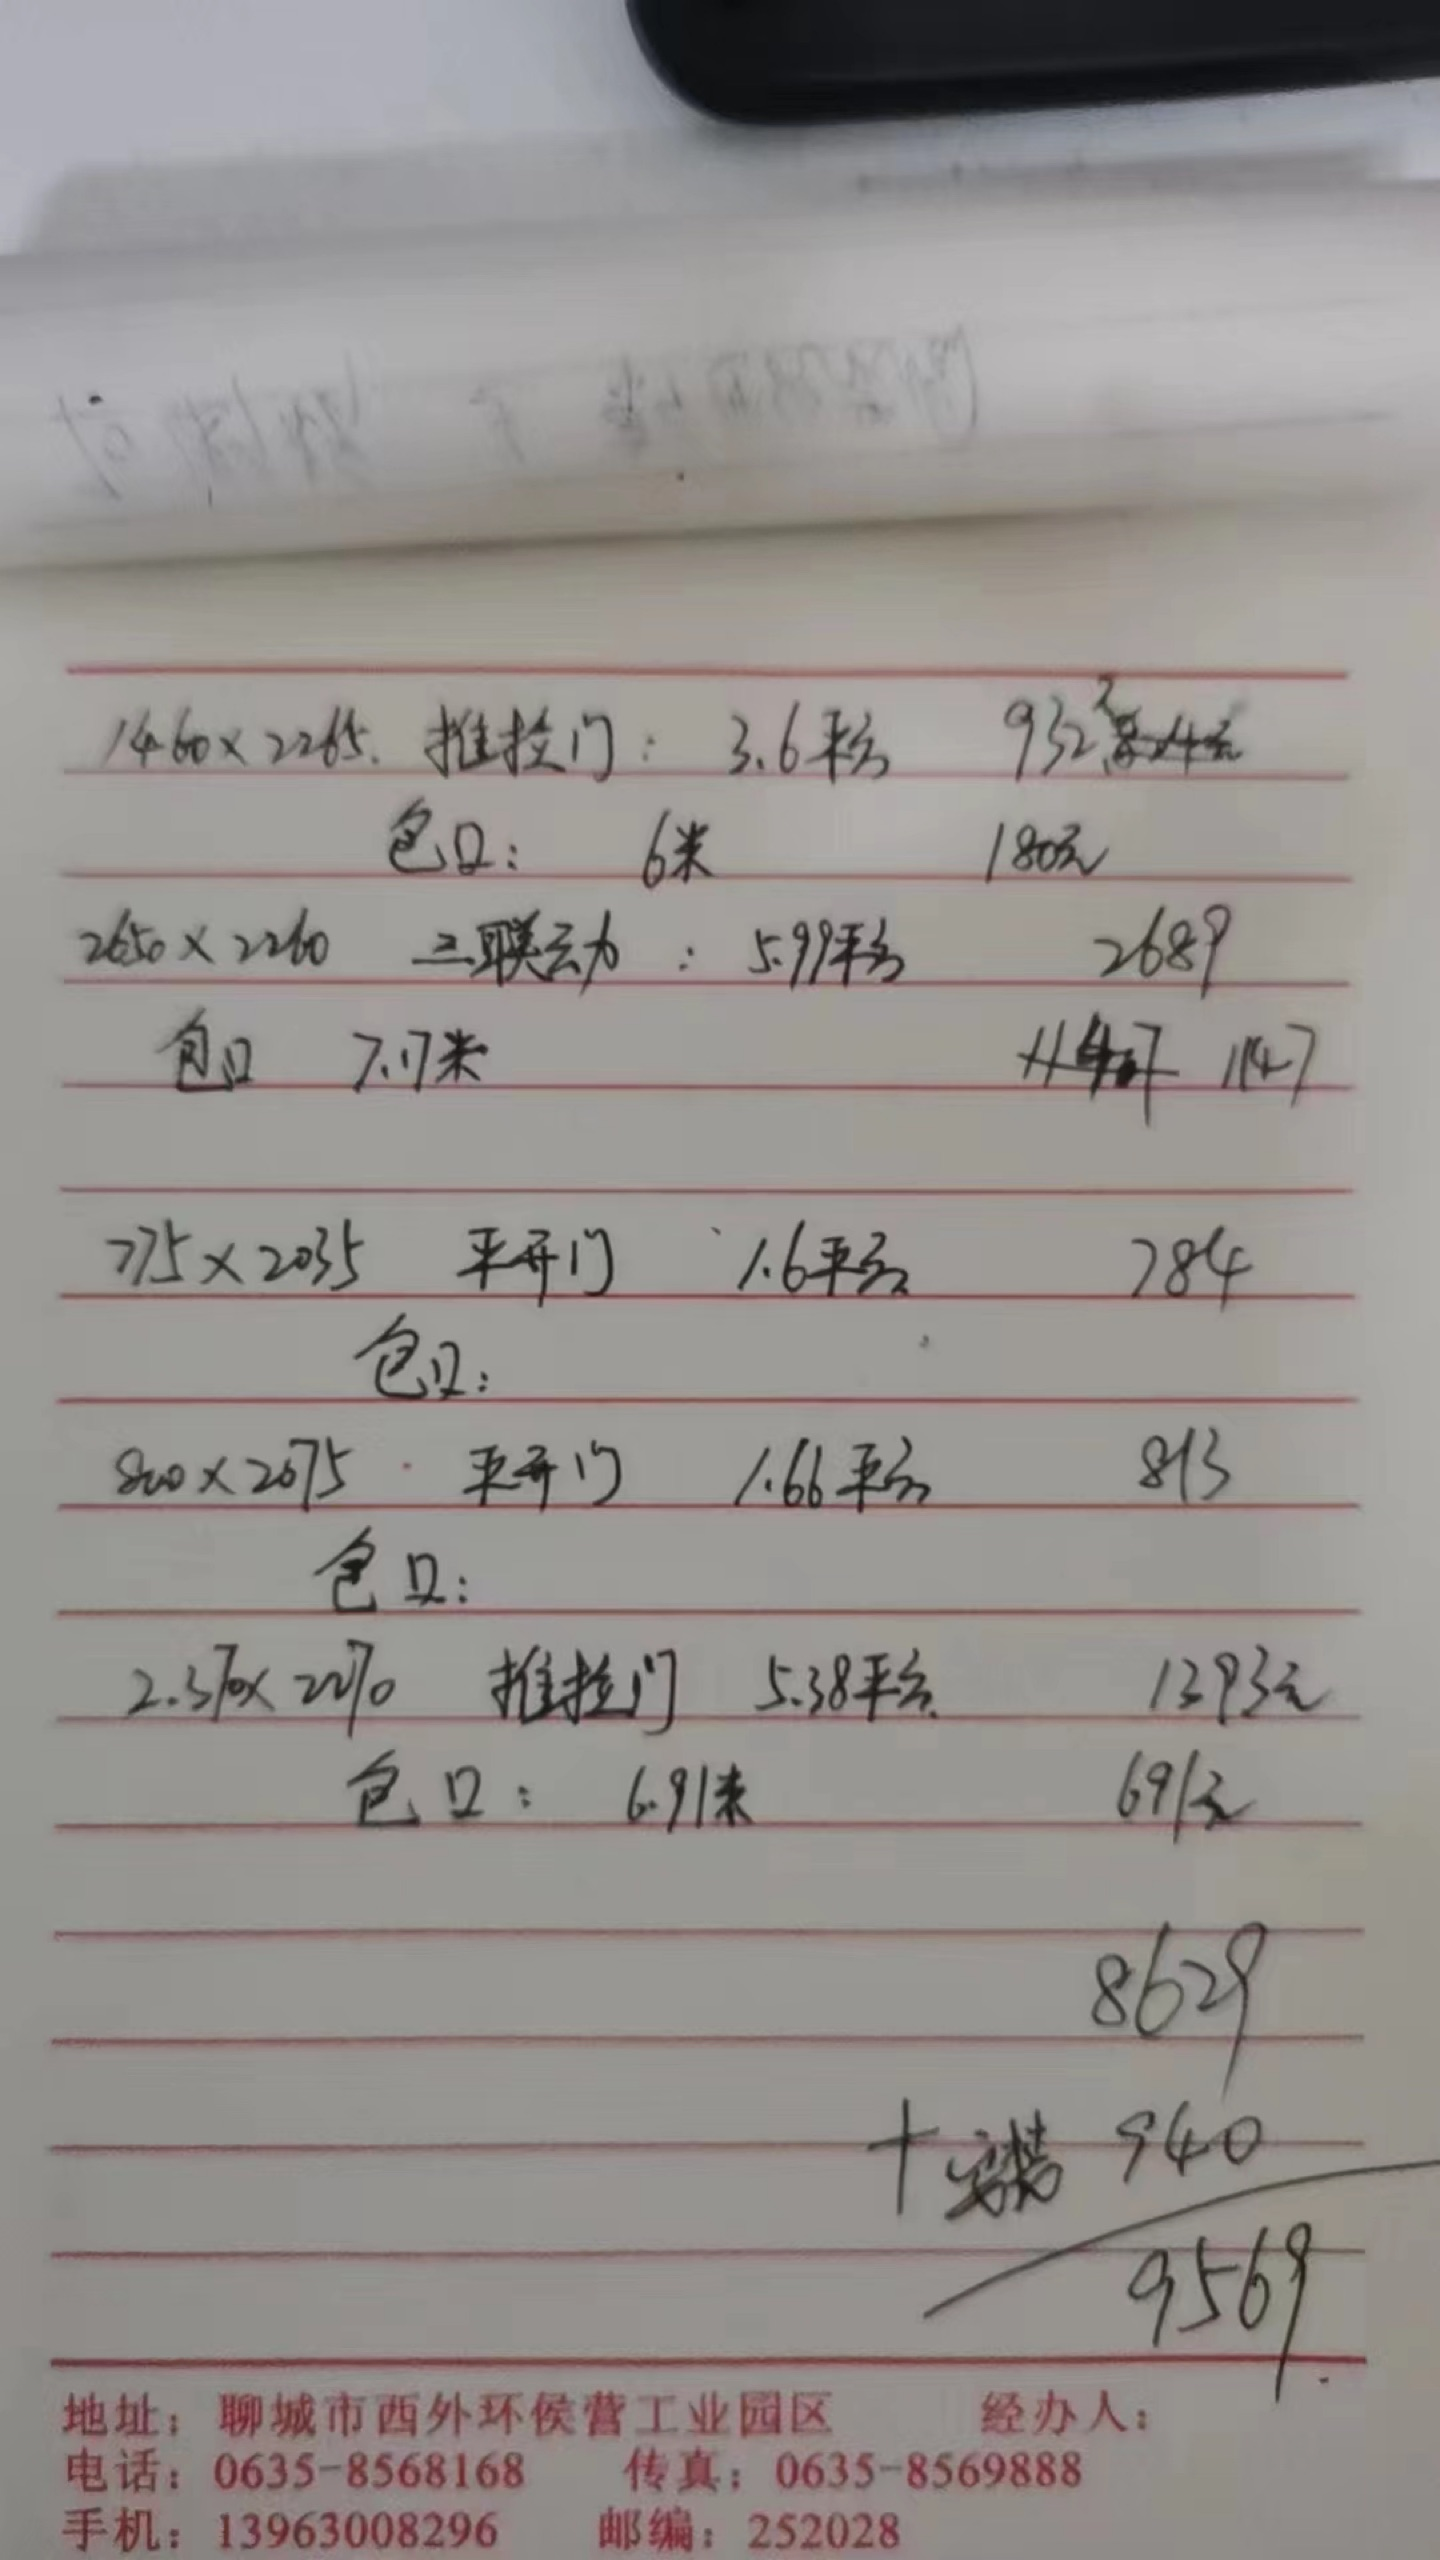 1460×2265. 推拉门: 3.6平方 932元
包口: 6米 180元
2650×2260 三联动: 5.99平方 2689
包口 7.17米 1147
775×2035 平开门 1.6平方 784
包口:
800×2075 平开门 1.66平方 813
包口:
2.370×2270 推拉门 5.38平方 1393元
包口: 6.91米 691元
8629
+安装 940
9569
地址: 聊城市西外环侯营工业园区 经办人:
电话: 0635-8568168 传真: 0635-8569888
手机: 13963008296 邮编: 252028